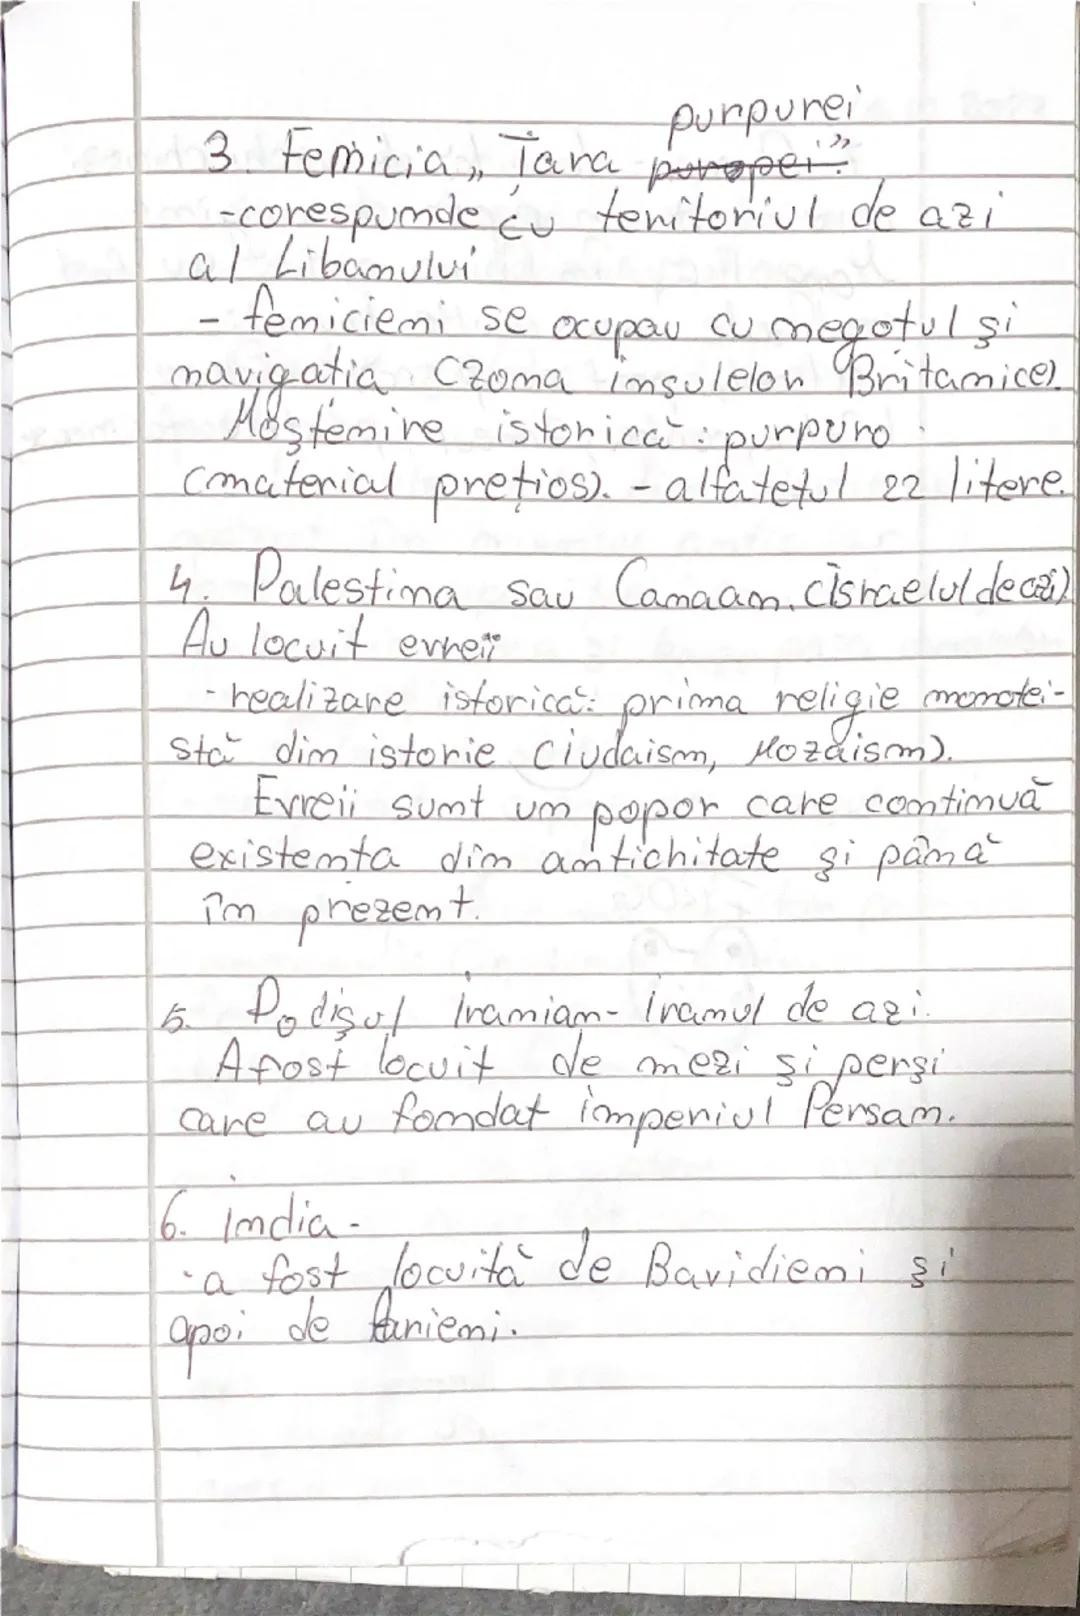 purpurei
3. Fenicia „Țara puropei."
-corespunde cu teritoriul de azi
al Libanului
- fenicieni se ocupau cu negotul și
navigatia (Zona insulelor Britanice).
Moștenire istorică: purpuro
(material prețios). - alfatetul 22 litere.
4. Palestina sau Canaan. (Israelul de azi)
Au locuit evreii
-realizare istorică: prima religie monotei-
stă din istorie (iudaism, Mozaism).
Evreii sunt un popor care continuă
existenta din antichitate și până
în prezent.
5. Podișul Iranian- Iranul de azi.
A fost locuit de mezi și perși
care au fondat imperiul Persan.
6. India -
-a fost locuită de Bavidieni și
apoi de Arieni.